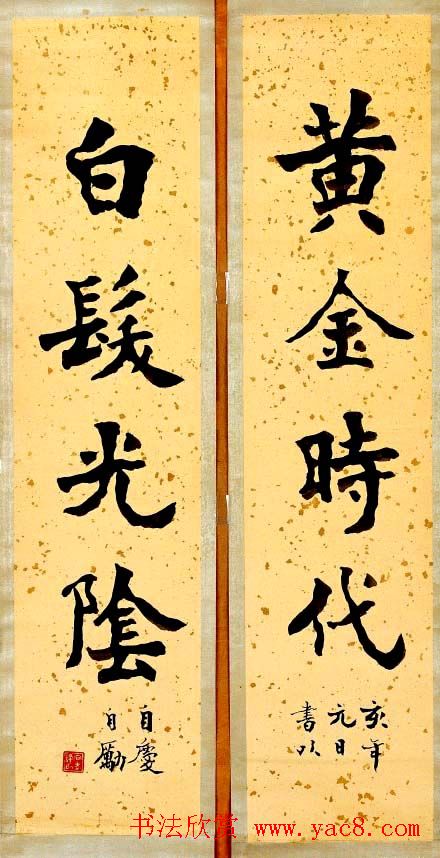 黄金時代
亥年
元日
書以
白髮光陰
自慶
自勵
书法欣赏 www.yac8.com